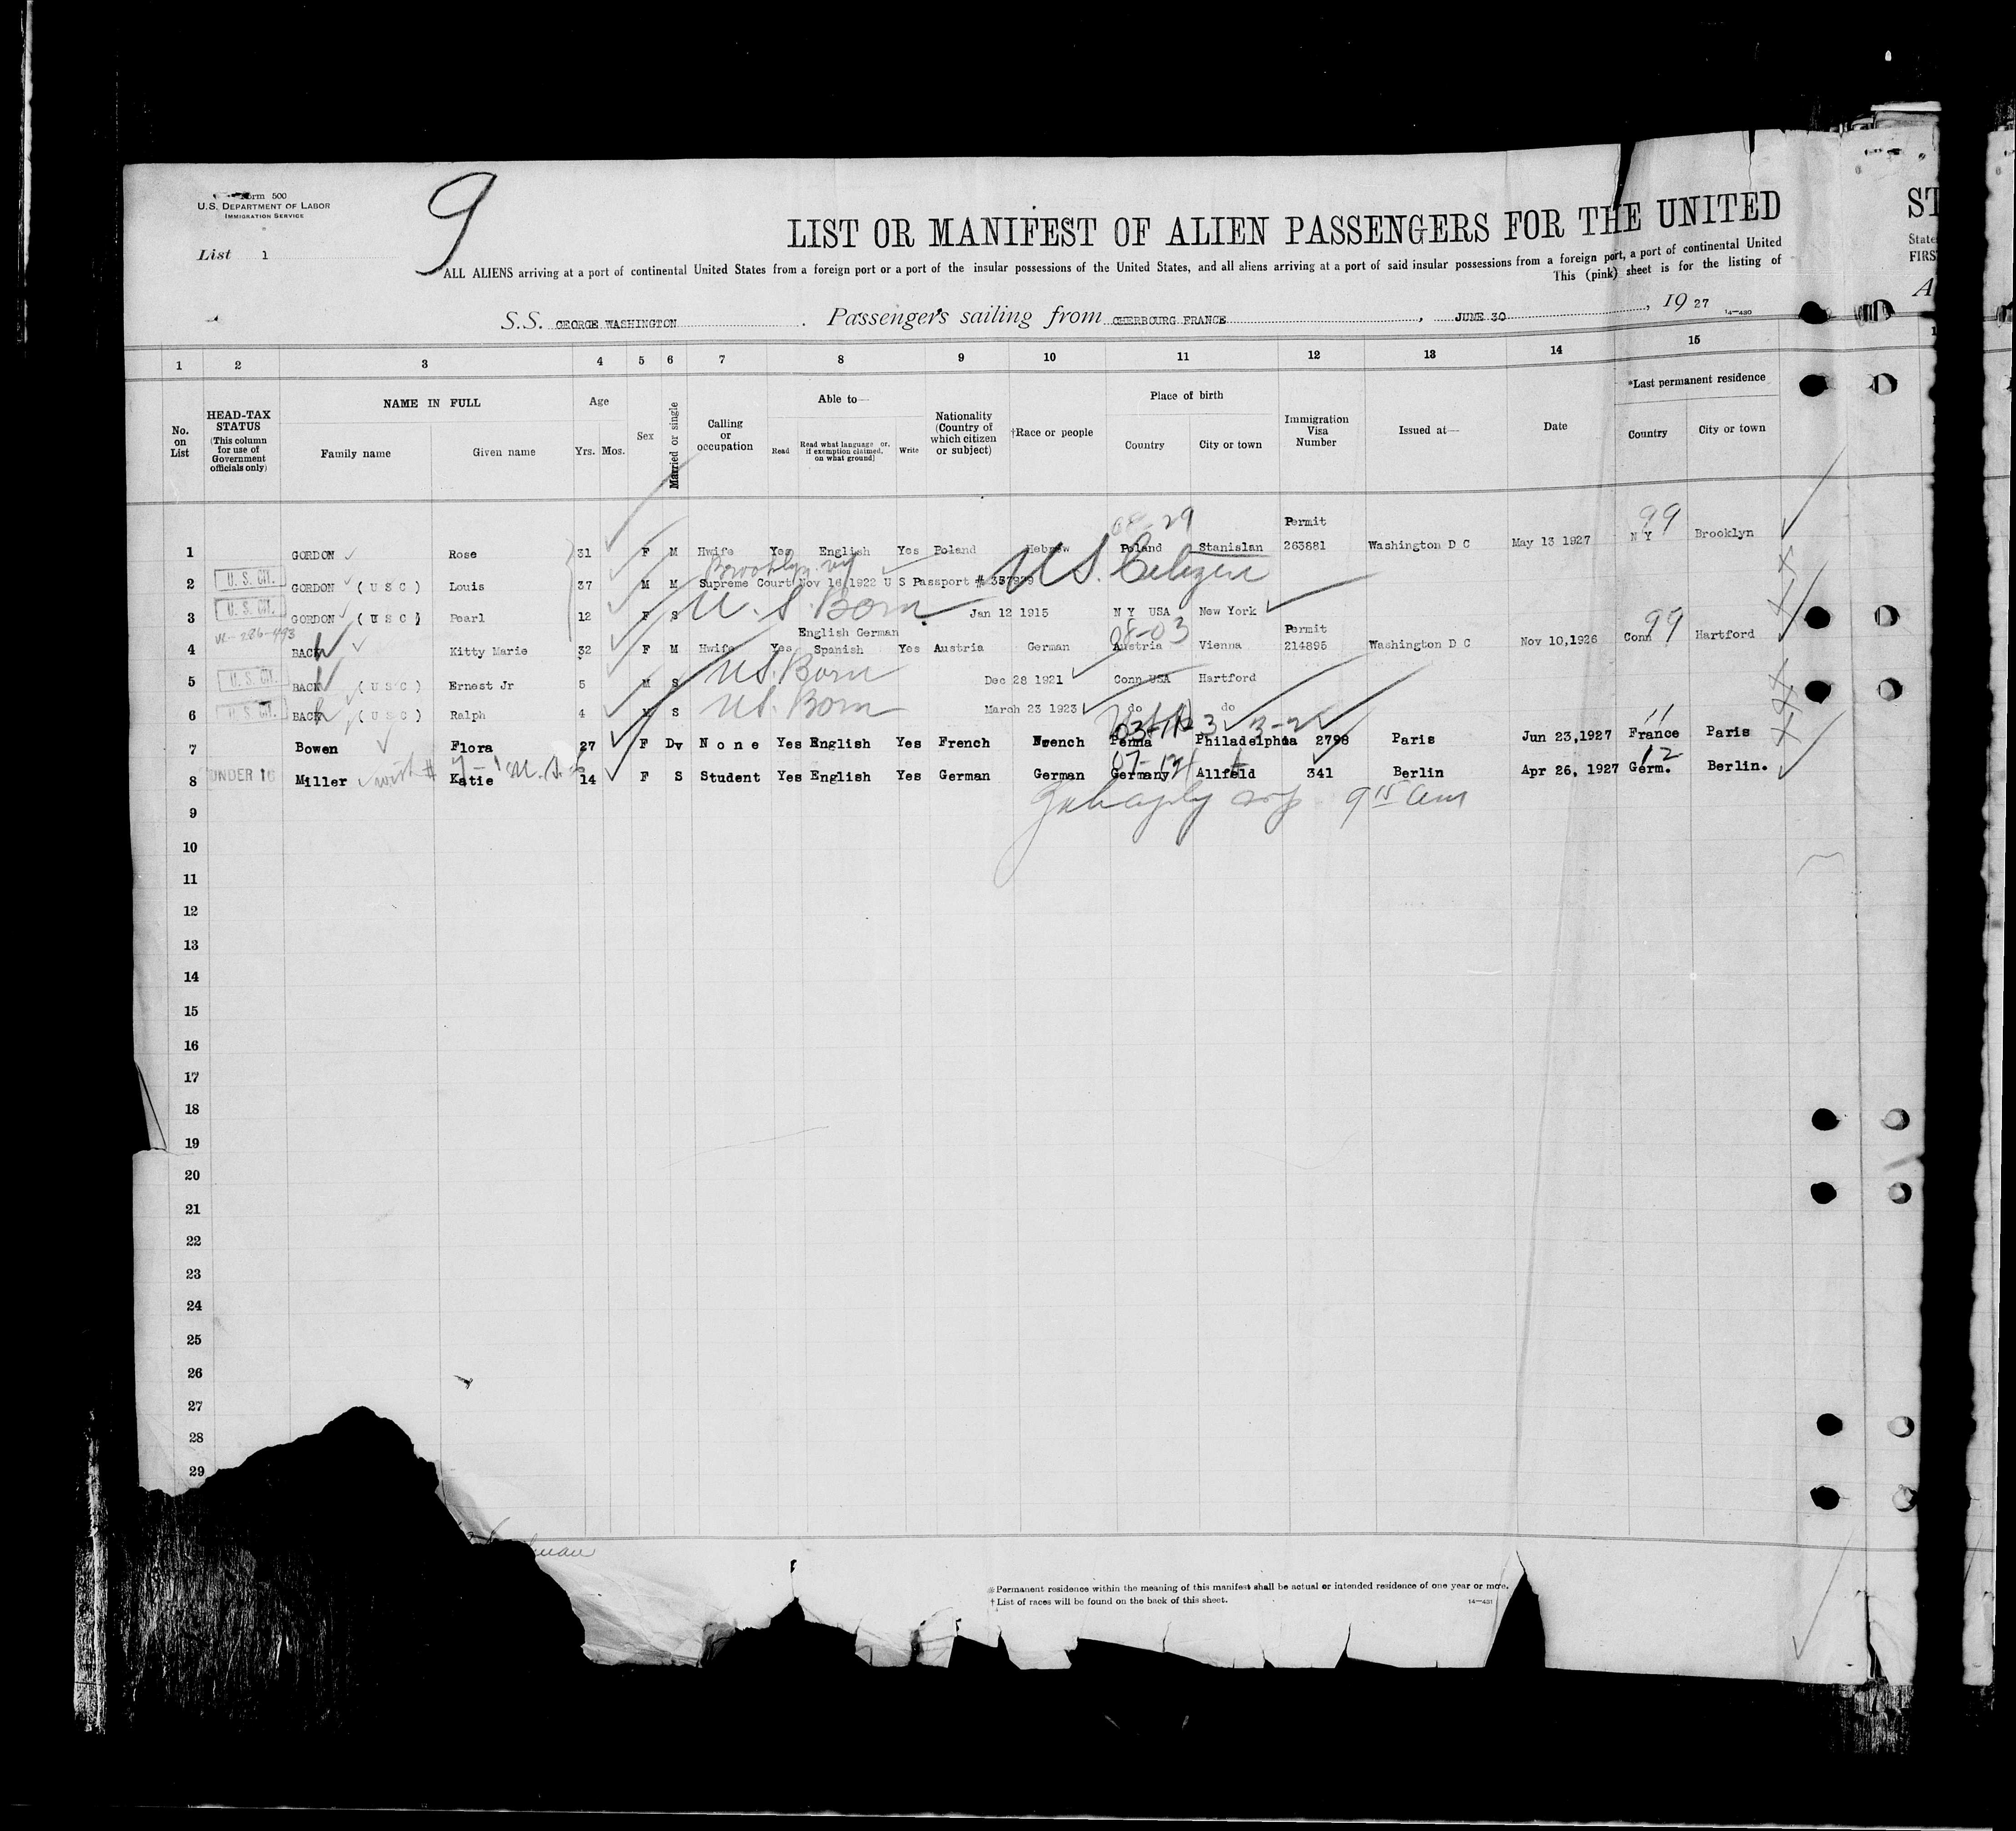 Form 500
U.S. DEPARTMENT OF LABOR
IMMIGRATION SERVICE
9
List 1
LIST OR MANIFEST OF ALIEN PASSENGERS FOR THE UNITED
ST
ALL ALIENS arriving at a port of continental United States from a foreign port or a port of the insular possessions of the United States, and all aliens arriving at a port of said insular possessions from a foreign port, a port of continental United
State
This (pink) sheet is for the listing of
FIRS
S.S. GEORGE WASHINGTON. Passengers sailing from CHERBOURG FRANCE, JUNE 30, 19 27
14—480
1 2 3 4 5 6 7 8 9 10 11 12 13 14 15
No. on List
HEAD-TAX STATUS (This column for use of Government officials only)
NAME IN FULL
Family name Given name
Age
Yrs. Mos.
Sex
Married or single
Calling or occupation
Able to—
Read
Read what language or, if exemption claimed, on what ground]
Write
Nationality (Country of which citizen or subject)
†Race or people
Place of birth
Country City or town
Immigration Visa Number
Issued at—
Date
*Last permanent residence
Country City or town
08-29 Permit 99
1 GORDON Rose 31 F M Hwife Yes English Yes Poland Hebrew Poland Stanislan 263881 Washington D C May 13 1927 N Y Brooklyn
Brooklyn ny
2 U.S. CIT. GORDON (U S C) Louis 37 M M Supreme Court Nov 16 1922 U S Passport # US. Citizen
3 U.S. CIT. GORDON (U S C) Pearl 12 F S U.S. Born Jan 12 1915 N Y USA New York
English German 08-03 Permit 99
4 BACH Kitty Marie 32 F M Hwife Yes Spanish Yes Austria German Austria Vienna 214895 Washington D C Nov 10,1926 Conn Hartford
5 U.S. CIT. BACH (U S C) Ernest Jr 5 M S US. Born Dec 28 1921 Conn USA Hartford
6 U.S. CIT. BACH (U S C) Ralph 4 M S US. Born March 23 1923 do do
11
7 Bowen Flora 27 F Dv None Yes English Yes French French Penna Philadelphia 2798 Paris Jun 23,1927 France Paris
12
8 UNDER 16 Miller Katie 14 F S Student Yes English Yes German German Germany Allfeld 341 Berlin Apr 26, 1927 Germ. Berlin.
9
10
11
12
13
14
15
16
17
18
19
20
21
22
23
24
25
26
27
28
29
*Permanent residence within the meaning of this manifest shall be actual or intended residence of one year or more.
†List of races will be found on the back of this sheet.
14—431